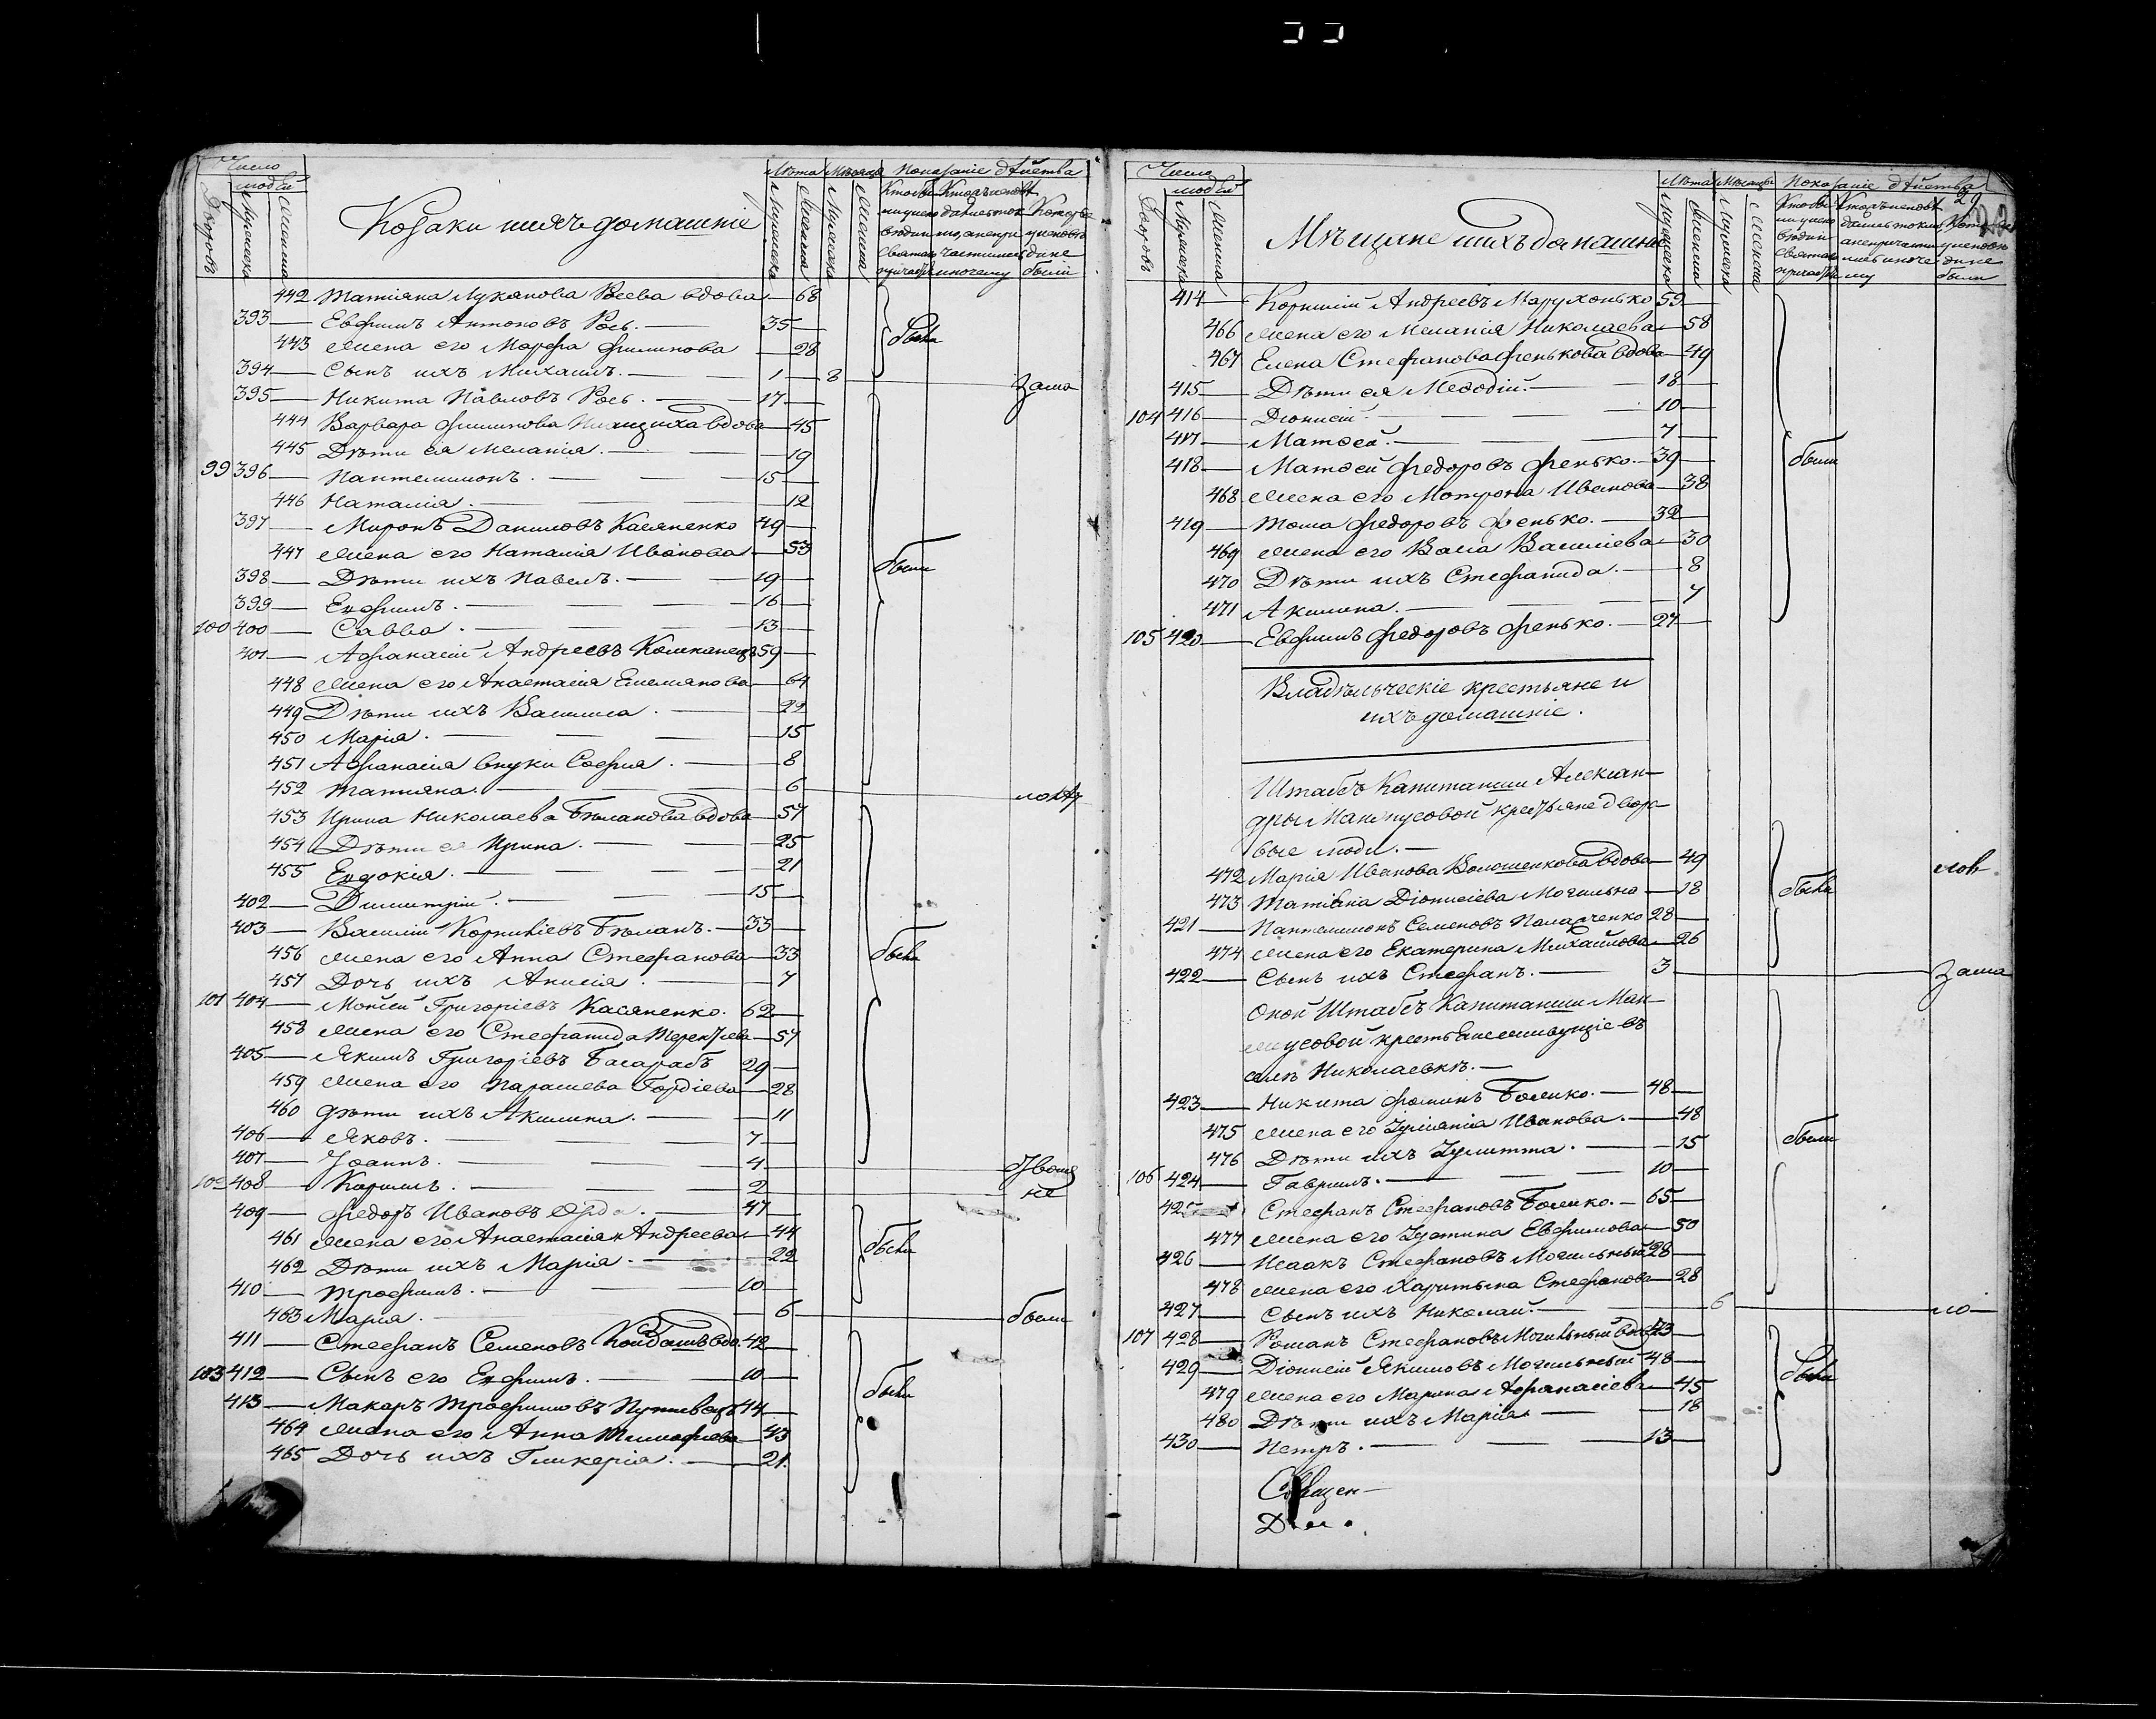 Число
людей
Дворовъ
Мужеска
Женска
Козаки и ихъ домашніе
Лѣта
Мужеска
Женска
Мѣсяцы
Мужеска
Женска
Показаніе дѣйства
442 Татіяна Лукянова Роева вдова 68
393 Евфимъ Антоновъ Роев. 35
443 Жена его Марфа Филипова 28
394 Сынъ ихъ Михаилъ. 1 8
395 Никита Павловъ Роев. 17
444 Варвара Филипова вдова 45
445 Дѣти ея Меланія. 19
99 396 Пантелимонъ. 15
446 Наталія. 12
397 Миронъ Даниловъ Касяненко 49
447 Жена его Наталія Иванова 53
398 Дѣти ихъ Павелъ. 19
399 Евфимъ. 16
100 400 Савва. 13
401 Афанасій Андреевъ 59
448 Жена его Анастасія Емелянова 64
449 Дѣти ихъ Василиса. 22
450 Марія. 15
451 Афанасія внуки Софія. 8
452 Татіяна. 6
453 Ирина Николаева Бѣланова вдова 57
454 Дѣти ея Ирина. 25
455 Евдокія. 21
402 Димитрій. 15
403 Василій Корніевъ Бѣланъ. 33
456 Жена его Анна Стефанова 33
457 Дочь ихъ Анисія. 7
101 404 Мойсей Григоріевъ Касяненко. 62
458 Жена его Стефанида Терентіева 57
405 Якимъ Григоріевъ Басарабъ 29
459 Жена его Параскева Гордіева 28
460 Дѣти ихъ Акилина. 11
406 Яковъ. 7
407 Іоаннъ. 4
102 408 Кирилъ. 2
409 Федоръ Ивановъ 47
461 Жена его Анастасія Андреева 44
462 Дѣти ихъ Марія. 22
410 Трофимъ. 10
463 Марія. 6
411 Стефанъ Семеновъ Койдашъ вдо. 42
103 412 Сынъ его Евфимъ. 10
413 Макаръ Трофимовъ Путивецъ 44
464 Жена его Анна Тимофеева 43
465 Дочь ихъ Гликерія. 21.
были
были
были
были
были
были
Число
людей
Дворовъ
Мужеска
Женска
Мѣщане и ихъ домашніе
Лѣта
Мужеска
Женска
Мѣсяцы
Мужеска
Женска
Показаніе дѣйства
29
414 Корнилій Андреевъ Марухонько 59
466 Жена его Меланія Николаева 58
467 Елена Стефанова Фенькова вдова 49
415 Дѣти ея Меѳодій. 18
104 416 Діонисій. 10
417 Матѳей. 7
418 Матѳей Федоровъ Фенько. 39
468 Жена его Мотрона Иванова 38
419 Тома Федоровъ Фенько. 32
469 Жена его Васса Василіева 30
470 Дѣти ихъ Стефанида. 8
471 Акилина. 7
105 420 Евфимъ Федоровъ Фенько. 27
Владѣльческіе крестьяне и
ихъ домашніе.
Штабсъ Капитанши Алексан-
дры Манжусовой крестьяне дворо-
вые люди.
472 Марія Иванова Волошенкова вдова 49
473 Татіана Діонисіева Могильна 18
421 Пантелимонъ Семеновъ Паладченко 28
474 Жена его Екатерина Михайлова 26
422 Сынъ ихъ Стефанъ. 3
Оной Штабсъ Капитанши Ман-
жусовой крестьяне живущіе въ
селѣ Николаевкѣ.
423 Никита Фоминъ Божко. 48
475 Жена его Іуліанія Иванова. 48
476 Дѣти ихъ Іулитта. 15
106 424 Гавриилъ. 10
425 Стефанъ Стефановъ Божко. 65
477 Жена его Іустина Евфимова 50
426 Исаакъ Стефановъ Могильный 28
478 Жена его Харитына Стефанова 28
427 Сынъ ихъ Николай. 6
107 428 Романъ Стефановъ Могильный вдов 43
429 Діонисій Якимовъ Могильный 48
479 Жена его Марина Афанасіева 45
480 Дѣти ихъ Марія 18
430 Петръ. 13
были
были
были
были
Священ-